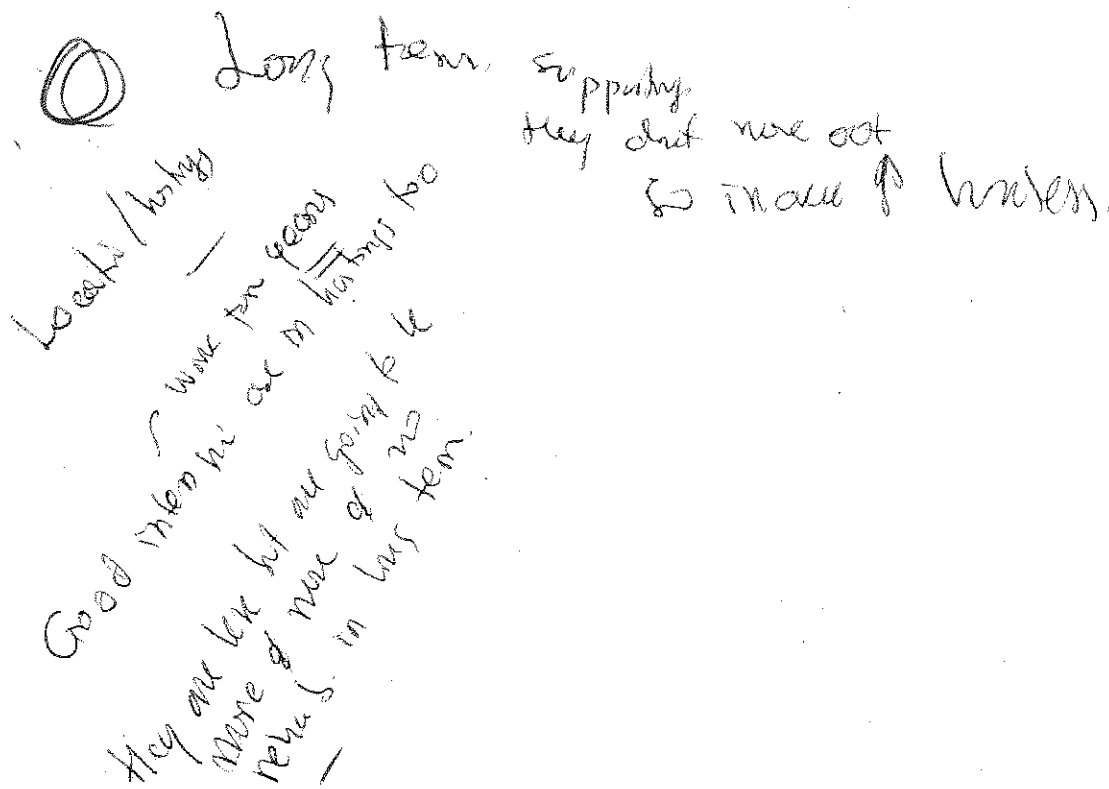 Long term. supporting.
they don't move out
so in area ↑ homeless.
Location / hastings
– work for years
Good intens are in hastings too
they are less but are going to be
more & more & no
in long term.